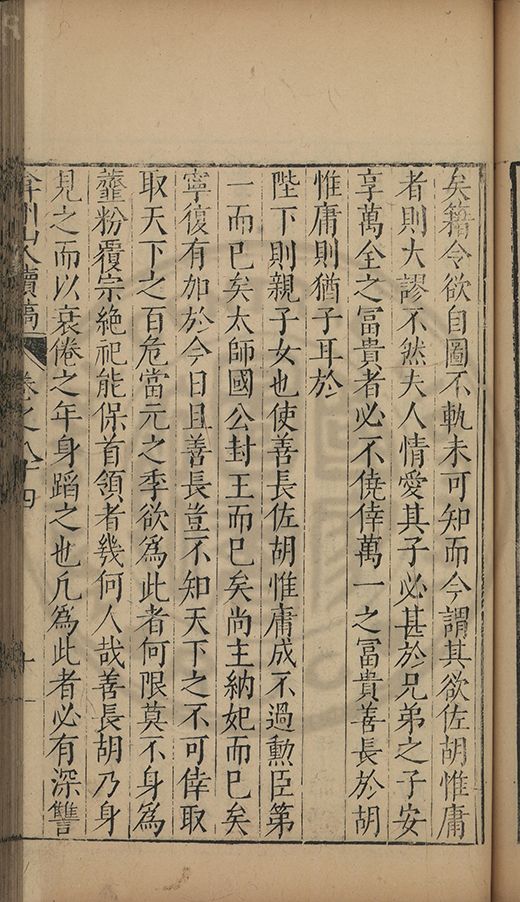 矣籍令欲自圖不軌未可知而今謂其欲佐胡惟庸
者則大謬不然夫人情愛其子必甚於兄弟之子安
享萬全之冨貴者必不僥倖萬一之冨貴善長於胡
惟庸則猶子耳於
陛下則親子女也使善長佐胡惟庸成不過勲臣第
一而巳矣太師國公封王而巳矣尚主納妃而巳矣
寧復有加於今日且善長豈不知天下之不可倖取
取天下之百危當元之季欲爲此者何限莫不身爲
虀粉覆宗絶祀能保首領者幾何人哉善長胡乃身
見之而以衰倦之年身蹈之也凢爲此者必有深讐
弇州山人續稿 卷之八十四